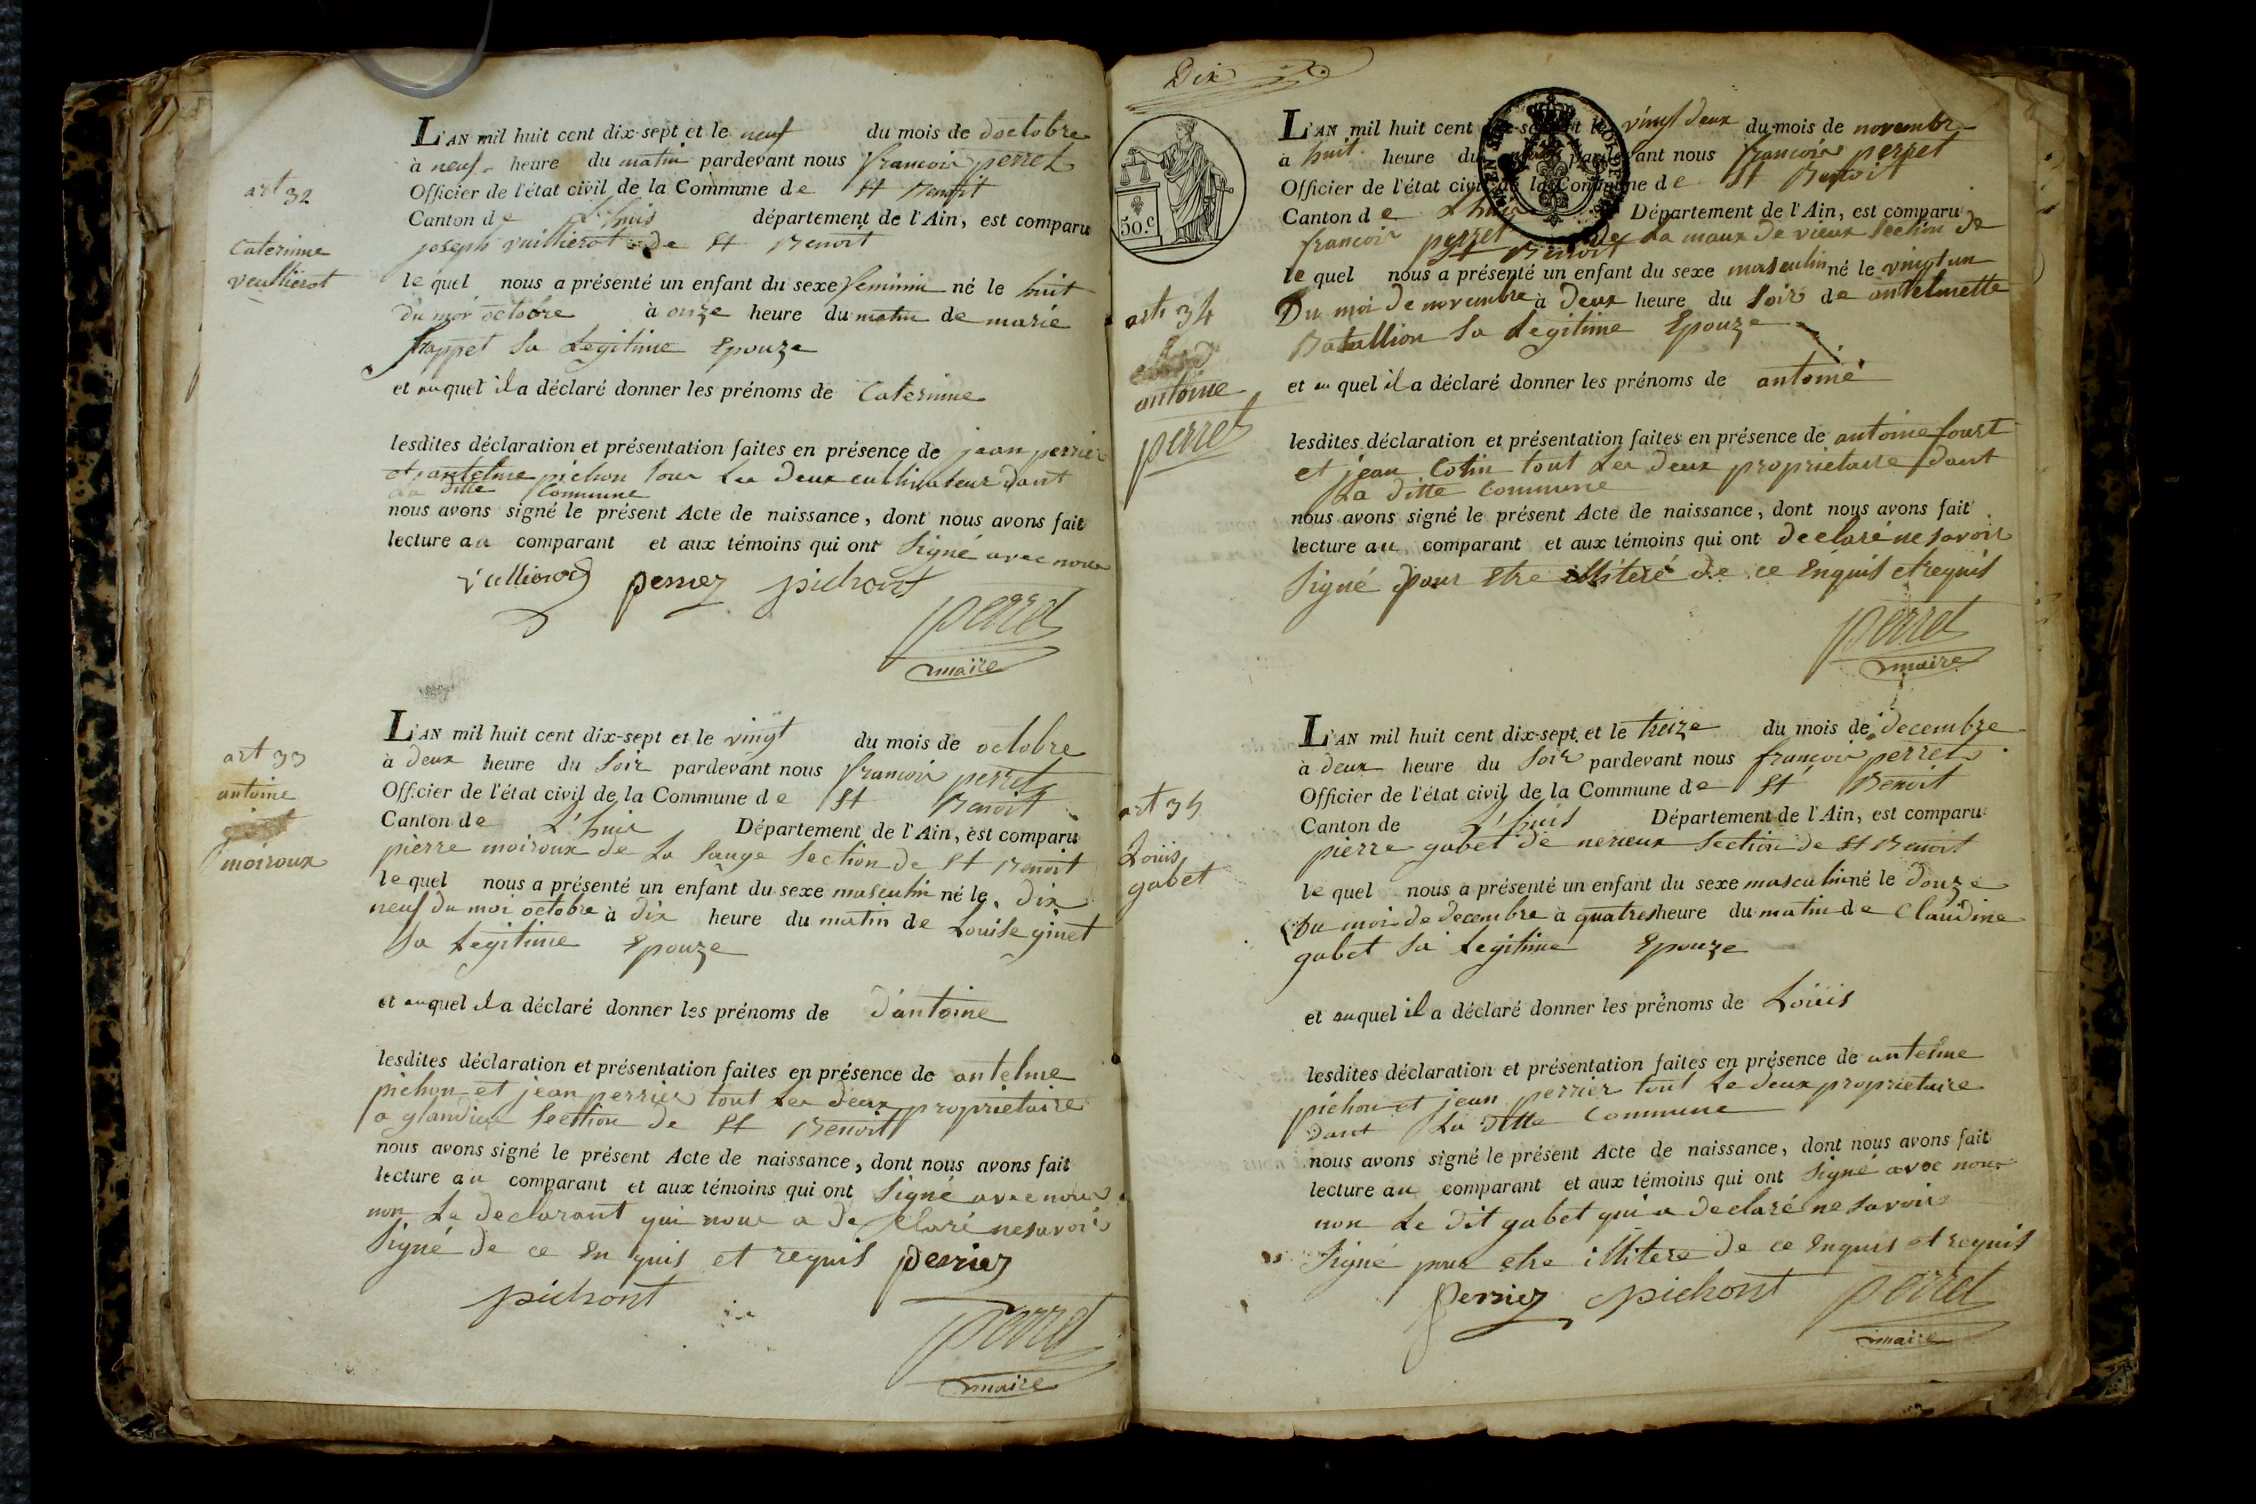 art 32
Caterinne
veullierot
L'AN mil huit cent dix-sept et le neuf du mois de doctobre
à neuf heure du matin pardevant nous francois perret
Officier de l'état civil de la Commune de St Benoit
Canton de L'huis département de l'Ain, est comparu
joseph vuillierot de St Benoit
le quel nous a présenté un enfant du sexe feminin né le huit
du moi octobre à onze heure du matin de marie
frappet Sa Legitime Epouze
et auquel il a déclaré donner les prénoms de Caterinne
lesdites déclaration et présentation faites en présence de jean perrier
et antelme pichon tous Les deux cultivateur dant
La ditte Commune
nous avons signé le présent Acte de naissance, dont nous avons fait
lecture au comparant et aux témoins qui ont Signé avec nous
perrier pichont
perret
maire
art 33
antoine
moiroux
L'AN mil huit cent dix-sept et le vingt du mois de octobre
à deux heure du Soir pardevant nous francois perret
Officier de l'état civil de la Commune de St Benoit
Canton de L'huis Département de l'Ain, est comparu
pierre moiroux de La Sauge Section de St Benoit
le quel nous a présenté un enfant du sexe masculin né le dix
neuf du moi octobre à dix heure du matin de Louise ginet
Sa Legitime Epouze
et auquel il a déclaré donner les prénoms de d'antoine
lesdites déclaration et présentation faites en présence de antelme
pichon et jean perrier tout Les deux proprietaire
a glandieu Section de St Benoit
nous avons signé le présent Acte de naissance, dont nous avons fait
lecture au comparant et aux témoins qui ont Signé avec nous
non Le declarant qui nous a declaré nesavoir
Signé de ce En quis et requis perrier
pichont
perret
maire
Dix
50.c
art 34
antoine
perret
L'AN mil huit cent dix-sept et le vingt deux du mois de novembre
à huit heure du pardevant nous francois perret
Officier de l'état civil de la Commune de St Benoit
Canton de L'huis Département de l'Ain, est comparu
francois perret de La maux de vieux Section de
St Benoit
le quel nous a présenté un enfant du sexe masculin né le vingt un
Du moi de novembre à Deux heure du Soir de antelmette
Batallion Sa Legitime Epouze
et au quel il a déclaré donner les prénoms de antoine
lesdites déclaration et présentation faites en présence de antoine fourt
et jean Cotin tout Les deux proprietaire dant
La ditte Commune
nous avons signé le présent Acte de naissance, dont nous avons fait
lecture au comparant et aux témoins qui ont declaré ne savoir
Signé pour Etre illiteré de ce Enquis et requis
perret
maire
art 35
Louis
gabet
L'AN mil huit cent dix-sept et le treize du mois de decembre
à deux heure du Soir pardevant nous françois perret
Officier de l'état civil de la Commune de St Benoit
Canton de L'huis Département de l'Ain, est comparu
pierre gabet de nerieux Section de St Benoit
le quel nous a présenté un enfant du sexe masculin né le douze
du moi de decembre à quatres heure du matin de Claudine
gabet Sa Legitime Epouze
et auquel il a déclaré donner les prénoms de Louis
lesdites déclaration et présentation faites en présence de antelme
pichon et jean perrier tout Le deux proprietaire
dant La ditte Commune
nous avons signé le présent Acte de naissance, dont nous avons fait
lecture au comparant et aux témoins qui ont Signé avec nous
non Le dit gabet qui a declaré ne savoir
Signé pour etre illitere de ce Enquis et requis
perrier pichont perret
maire